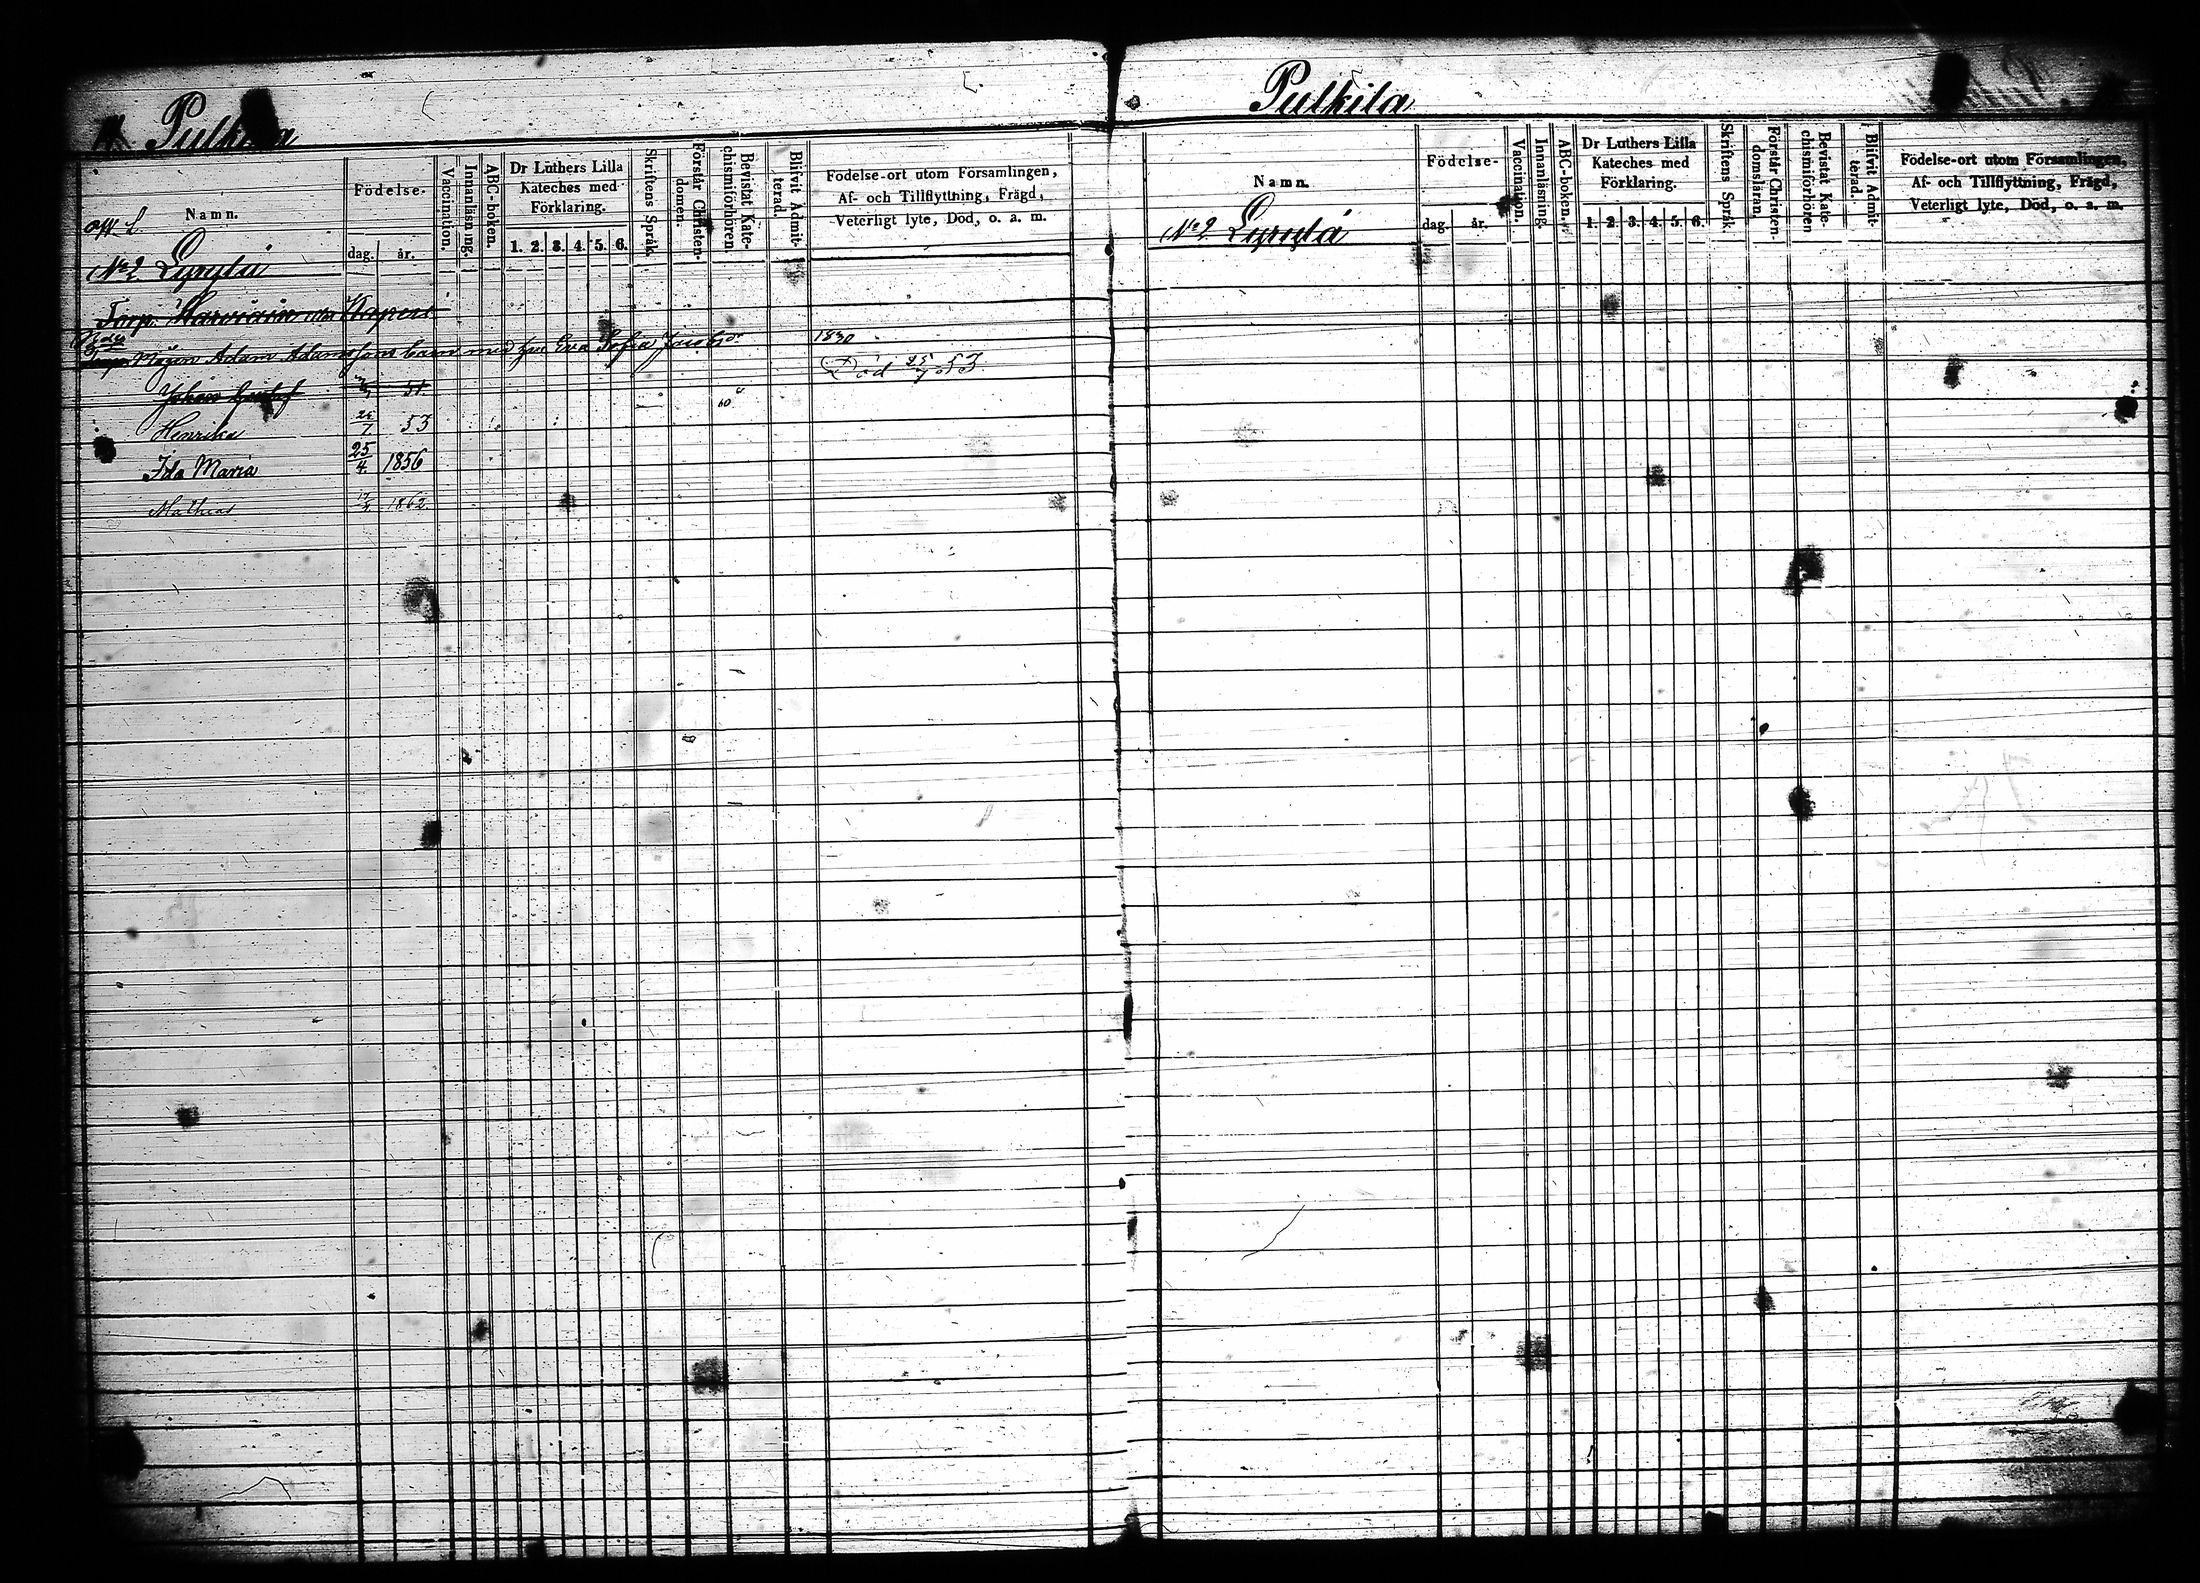 Pulkila
Namn.
Födelse-
dag. år.
Vaccination.
Innanläsning.
ABC-boken.
Dr Luthers Lilla
Kateches med
Förklaring.
1. 2. 3. 4. 5. 6.
Skriftens Språk.
Förstår Christen-
domen.
Bevistat Kate-
chismiförhören
Blifvit Admit-
terad.
Födelse-ort utom Församlingen,
Af- och Tillflyttning, Frägd,
Veterligt lyte, Död, o. a. m.
No 2
Torp.
Adam Adamssons barn med hu Eva Sofia Jacobsdr 1830
Död 25/7 53.
51.
60
Henrika 53
Ida Maria 25/4 1856
Mathias 1862
Pulkila
Namn.
Födelse-
dag. år.
Vaccination.
Innanläsning.
ABC-boken.
Dr Luthers Lilla
Kateches med
Förklaring.
1. 2. 3. 4. 5. 6.
Skriftens Språk.
Förstår Christen-
domsläran.
Bevistat Kate-
chismiförhören
Blifvit Admit-
terad.
Födelse-ort utom Församlingen,
Af- och Tillflyttning, Frägd,
Veterligt lyte, Död, o. a. m.
No 2